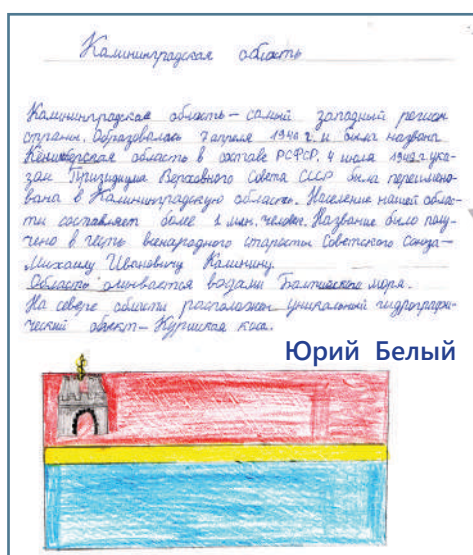 Калининградская область
Калининградская область – самый западный регион
страны. Образовалась 7 апреля 1946 г. и была названа
область в составе РСФСР. 4 июля 1946 г. ука-
зом Призидиума Верховного Совета СССР была переимено-
вана в Калининградскую область. Население нашей облас-
ти составляет более 1 млн. человек. Название было полу-
чено в честь всенародного старосты Советского Союза –
Михаилу Ивановичу Калинину.
Область омывается водами Балтийского моря.
На севере области расположен уникальный гидрографи-
ческий объект – Куршская коса.
Юрий Белый